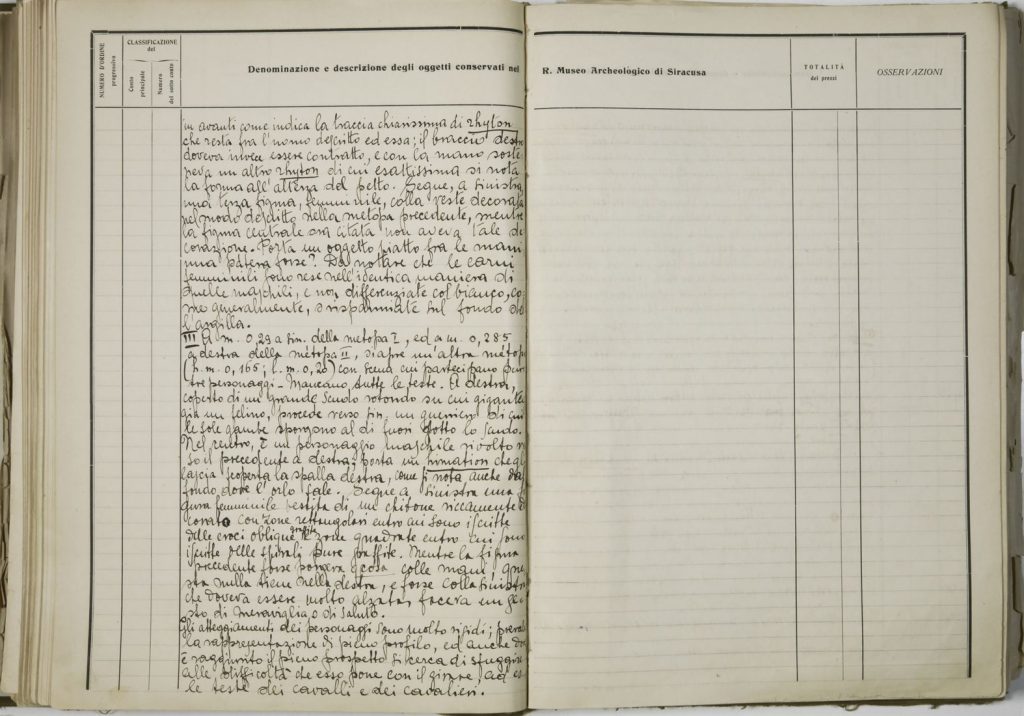 NUMERO D'ORDINE
progressivo
CLASSIFICAZIONE
del
Conto
principale
Numero
del sotto conto
Denominazione e descrizione degli oggetti conservati nel R. Museo Archeologico di Siracusa
TOTALITÀ
dei prezzi
OSSERVAZIONI
in avanti come indica la traccia chiarissima di rhyton
che resta fra l'uomo descritto ed essa; il braccio destro
doveva invece essere contratto, e con la mano soste
neva un altro rhyton di cui esattissima si nota
la forma all'altezza del petto. Segue, a sinistra,
una terza figura, femminile, colla veste decorata
nel modo descritto nella metopa precedente, mentre
la figura centrale ora citata non aveva tale de
corazione. Porta un oggetto piatto fra le mani
una patera forse? Da notare che le carni
femminili sono rese nell'identica maniera di
quelle maschili, e non differenziate col bianco, co
me generalmente, o risparmiate sul fondo del
l'argilla.
III A m. 0,29 a sin. della metopa I, ed a m. 0,285
a destra della metopa II, s'apre un'altra metopa
(h. m. 0,165; l. m. 0,20) con scena cui partecipano pure
tre personaggi - Mancano tutte le teste. A destra,
coperto di un grande scudo rotondo su cui gigante
gia un felino, procede verso sin. un guerriero di cui
le sole gambe sporgono al di fuori sotto lo scudo.
Nel centro, è un personaggio maschile rivolto
il precedente a destra; porta un himation che gli
lascia scoperta la spalla destra, come si nota anche
fondo dove l'orlo sale. Segue a sinistra una fi
gura femminile vestita di un chitone riccamente de
corato con zone rettangolari entro cui sono iscritte
delle croci oblique graffite e zone quadrate entro cui sono
iscritte delle spirali pure graffite. Mentre la figura
precedente forse porgeva qcosa colle mani, que
sta nulla tiene nella destra, e forse colla sinistra
che doveva essere molto alzata, faceva un ge
sto di meraviglia o di saluto.
Gli atteggiamenti dei personaggi sono molto rigidi;
la rappresentazione di pieno profilo, ed anche dove
è raggiunto il pieno prospetto si cerca di sfuggire
alle difficoltà che esso pone con il girare ad es
le teste dei cavalli e dei cavalieri.